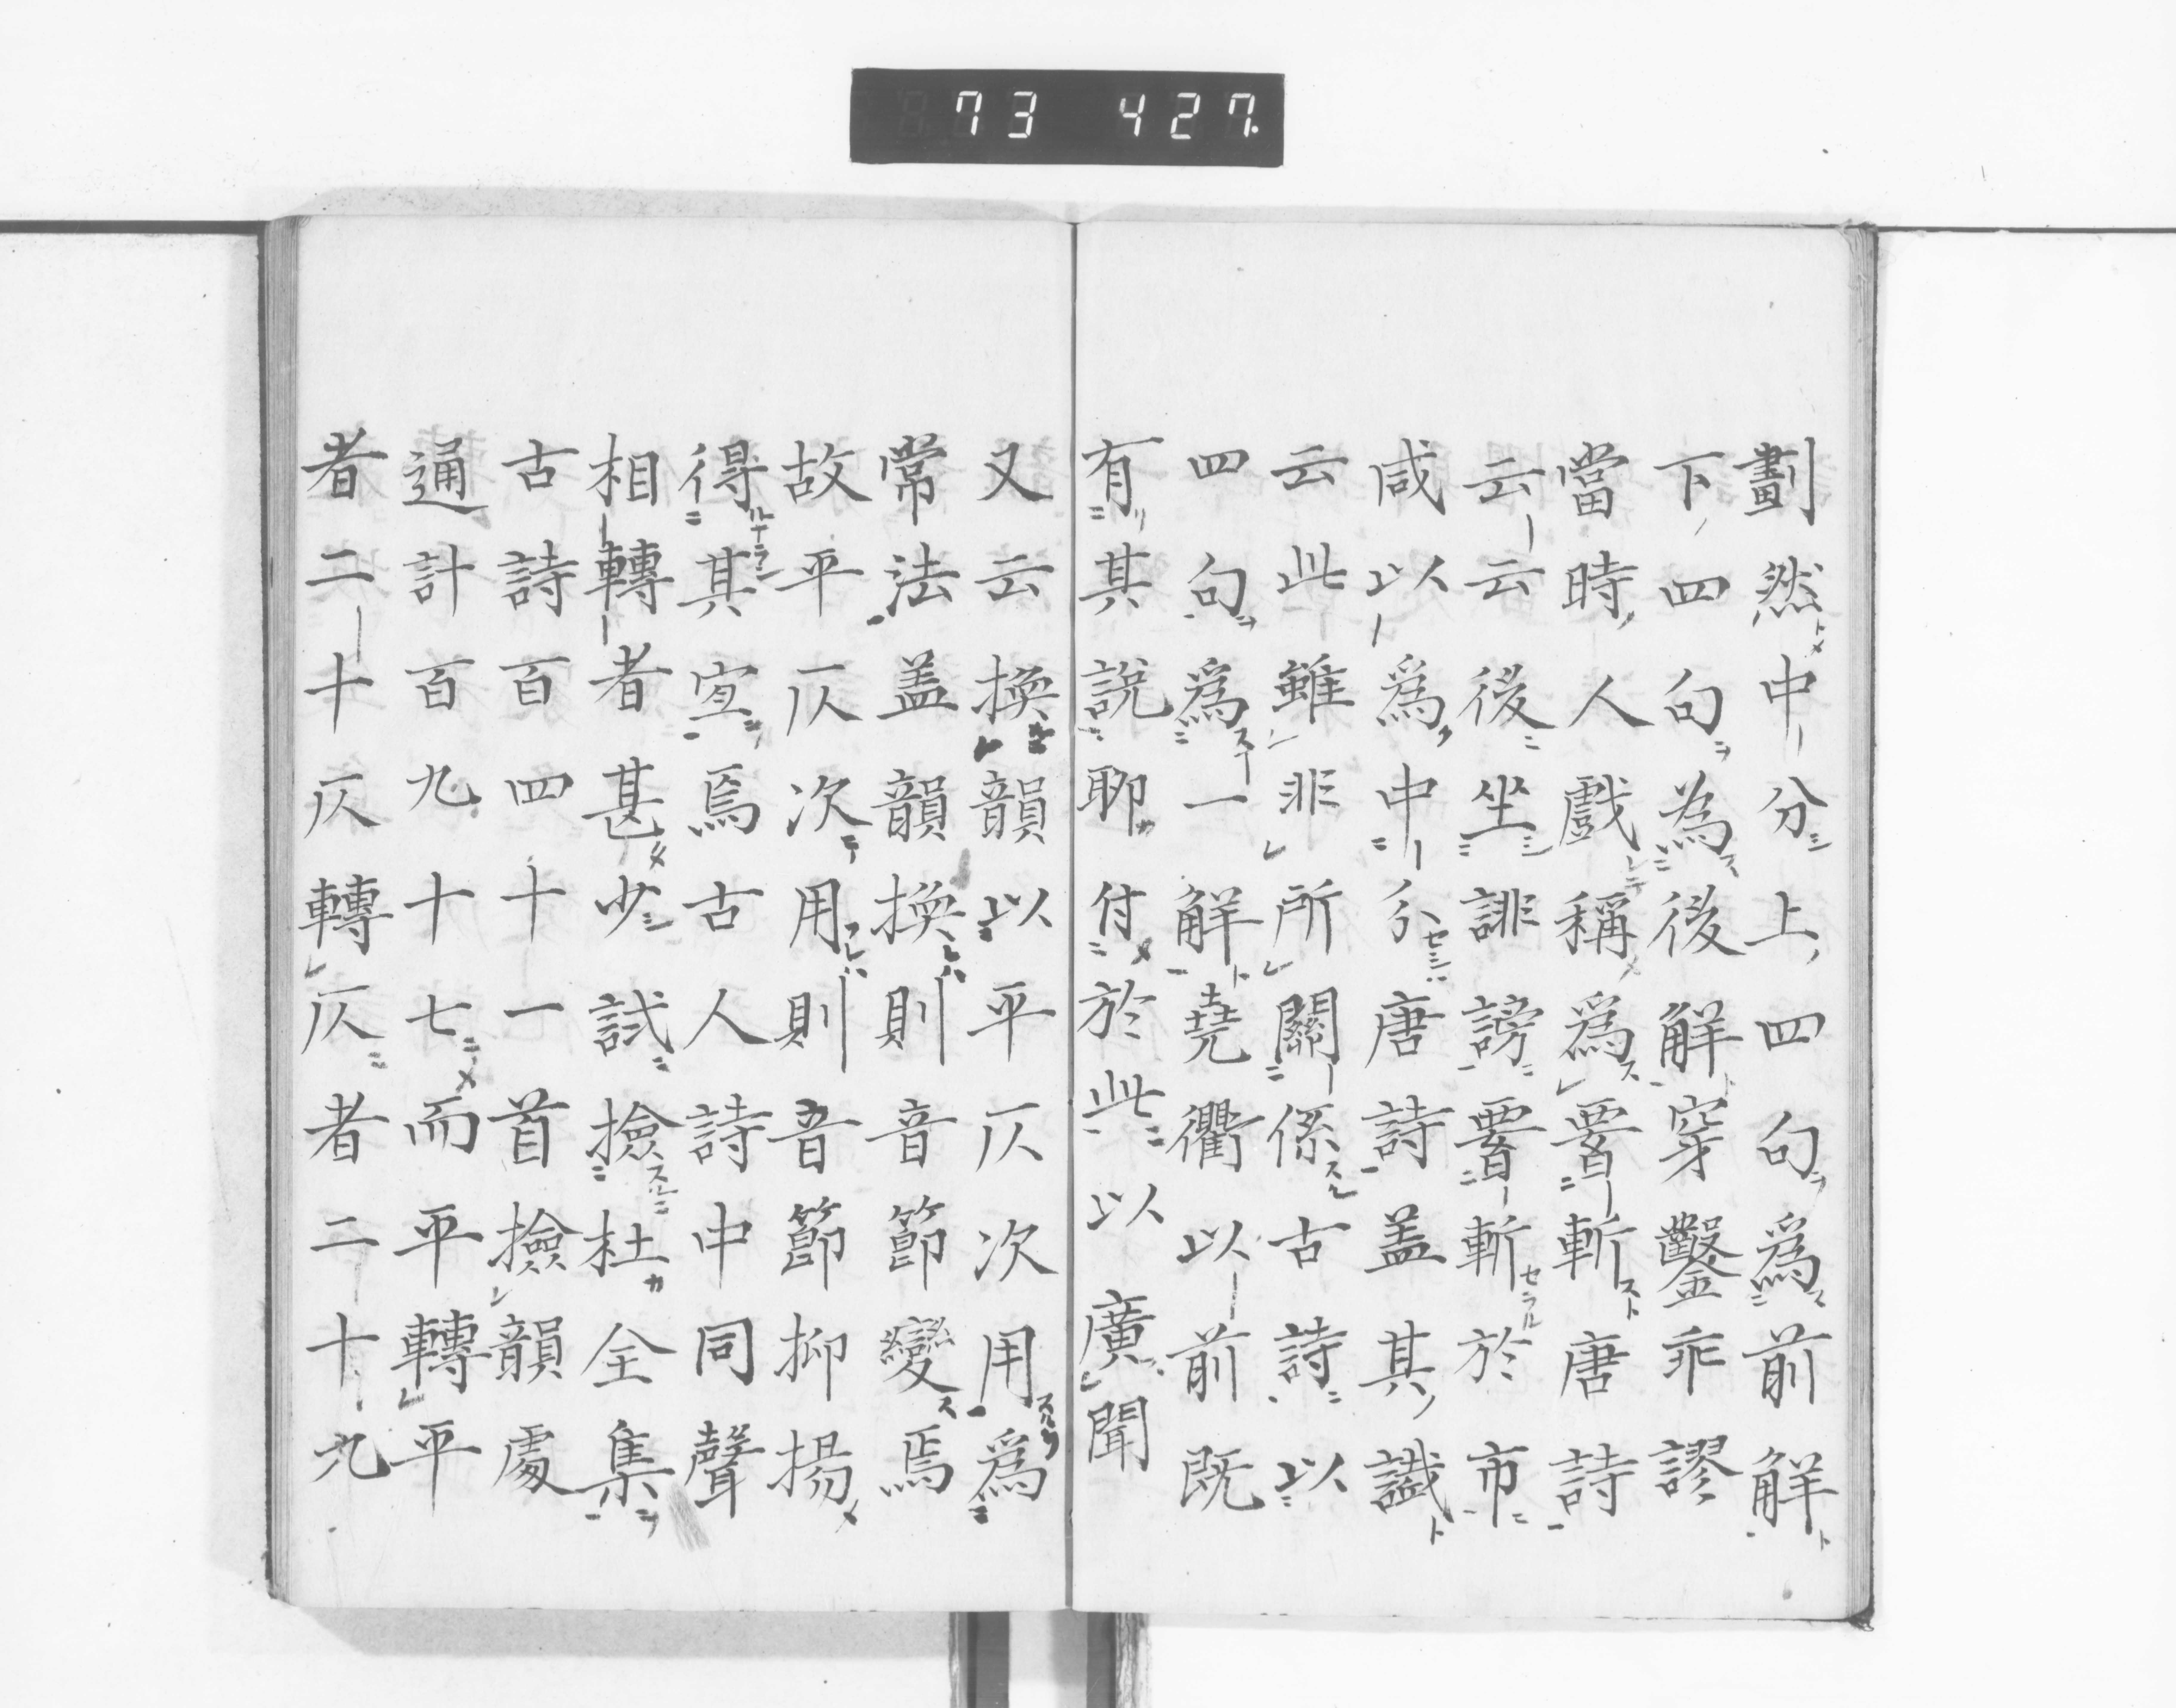 73 427
劃然中分上四句爲前解
下四句為後解穿鑿乖謬
當時人戲稱爲腰斬唐詩
云云後坐誹謗腰斬於市
咸以爲中分唐詩盖其讖
云此雖非所關係古詩以
四句爲一解堯衢以前既
有其說聊付於此以廣聞
又云換韻以平仄次用爲
常法盖韻換則音節變焉
故平仄次用則音節抑揚
得其宜焉古人詩中同聲
相轉者甚少試撿杜全集
古詩百四十一首撿韻處
通計百九十七而平轉平
者二十仄轉仄者二十九